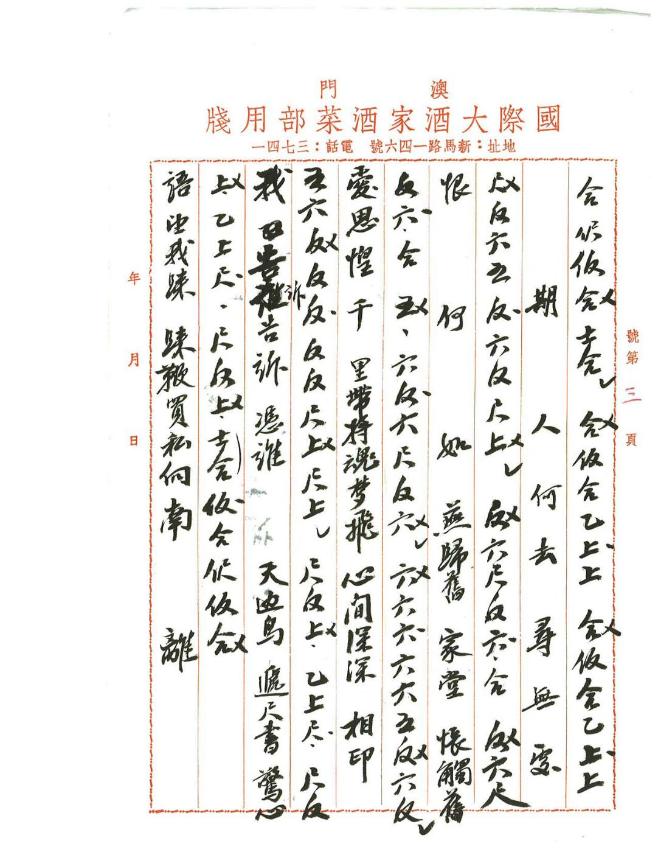 澳門
國際大酒家酒菜部用牋
地址：新馬路一四六號 電話：三七四一
號第三頁
合伬仮合士合 合仮合乙上上 合仮合乙上上
期 人何去尋無處
反六五反六反尺上 反六尺反六合 反六尺
恨何如 燕歸舊家堂 悵觸舊
反六合五、六反六尺反六 六六六六六五反六反
愛思惶千里帶持魂梦飛 心間深深相印
五六反反反反反尺上尺上 尺反上乙上尺 尺反
我 訴告訴憑誰 天边鳥遞尺書驚心
上乙上尺、尺反上士合仮合伬仮合
語 我 向南離
年月日